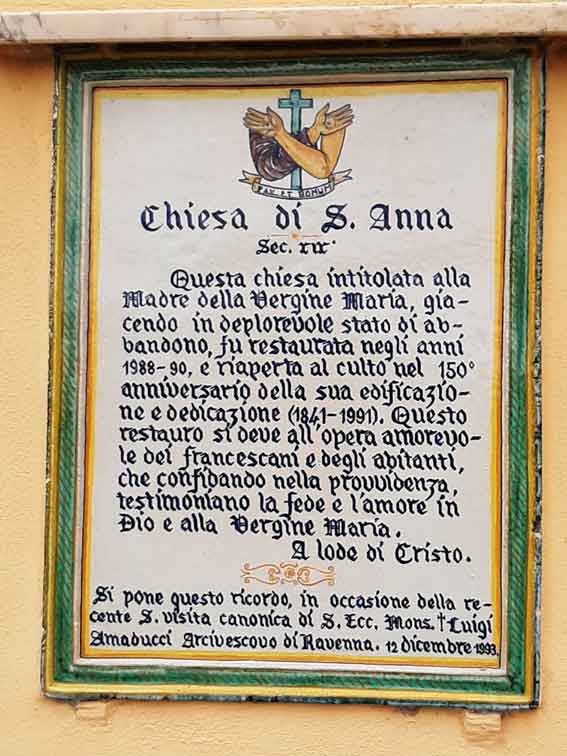 PAX ET BONUM
Chiesa di S. Anna
Sec. XIX°
Questa chiesa intitolata alla
Madre della Vergine Maria, gia-
cendo in deplorevole stato di ab-
bandono, fu restaurata negli anni
1988-90, e riaperta al culto nel 150°
anniversario della sua edificazio-
ne e dedicazione (1841-1991). Questo
restauro si deve all'opera amorevo-
le dei francescani e degli abitanti,
che confidando nella provvidenza,
testimoniano la fede e l'amore in
Dio e alla Vergine Maria.
A lode di Cristo.
Si pone questo ricordo, in occasione della re-
cente S. visita canonica di S. Ecc. Mons. † Luigi
Amaducci Arcivescovo di Ravenna. 12 dicembre 1993.